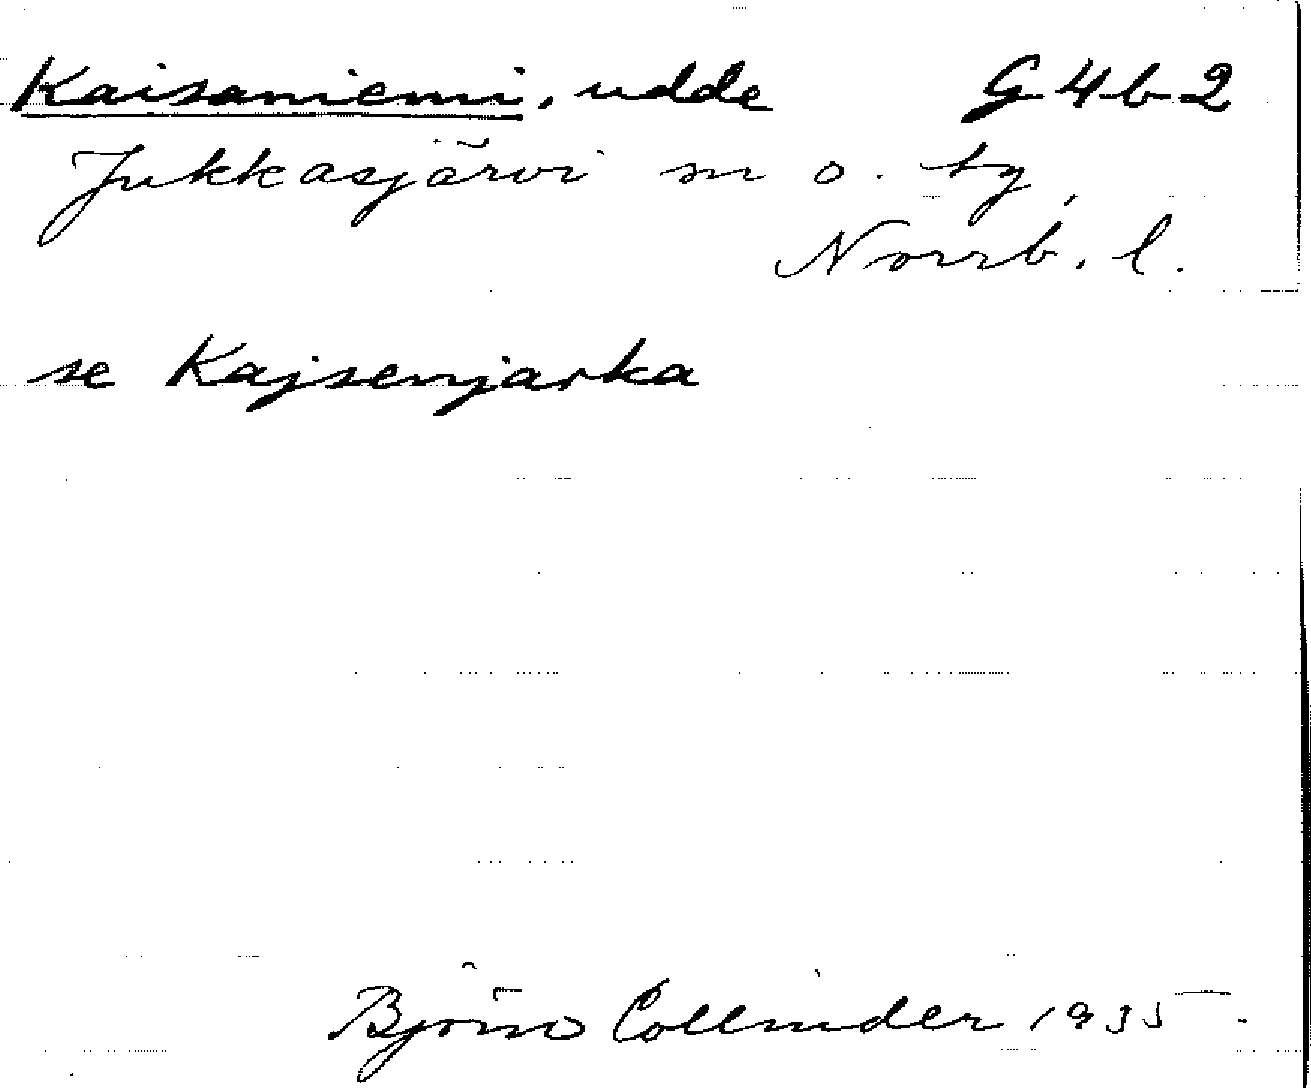 Kaisaniemi, udde G 4 b 2
Jukkasjärvi sn o. tg,
Norrb. l.
se Kajsenjarka
Björn Collinder 1935.